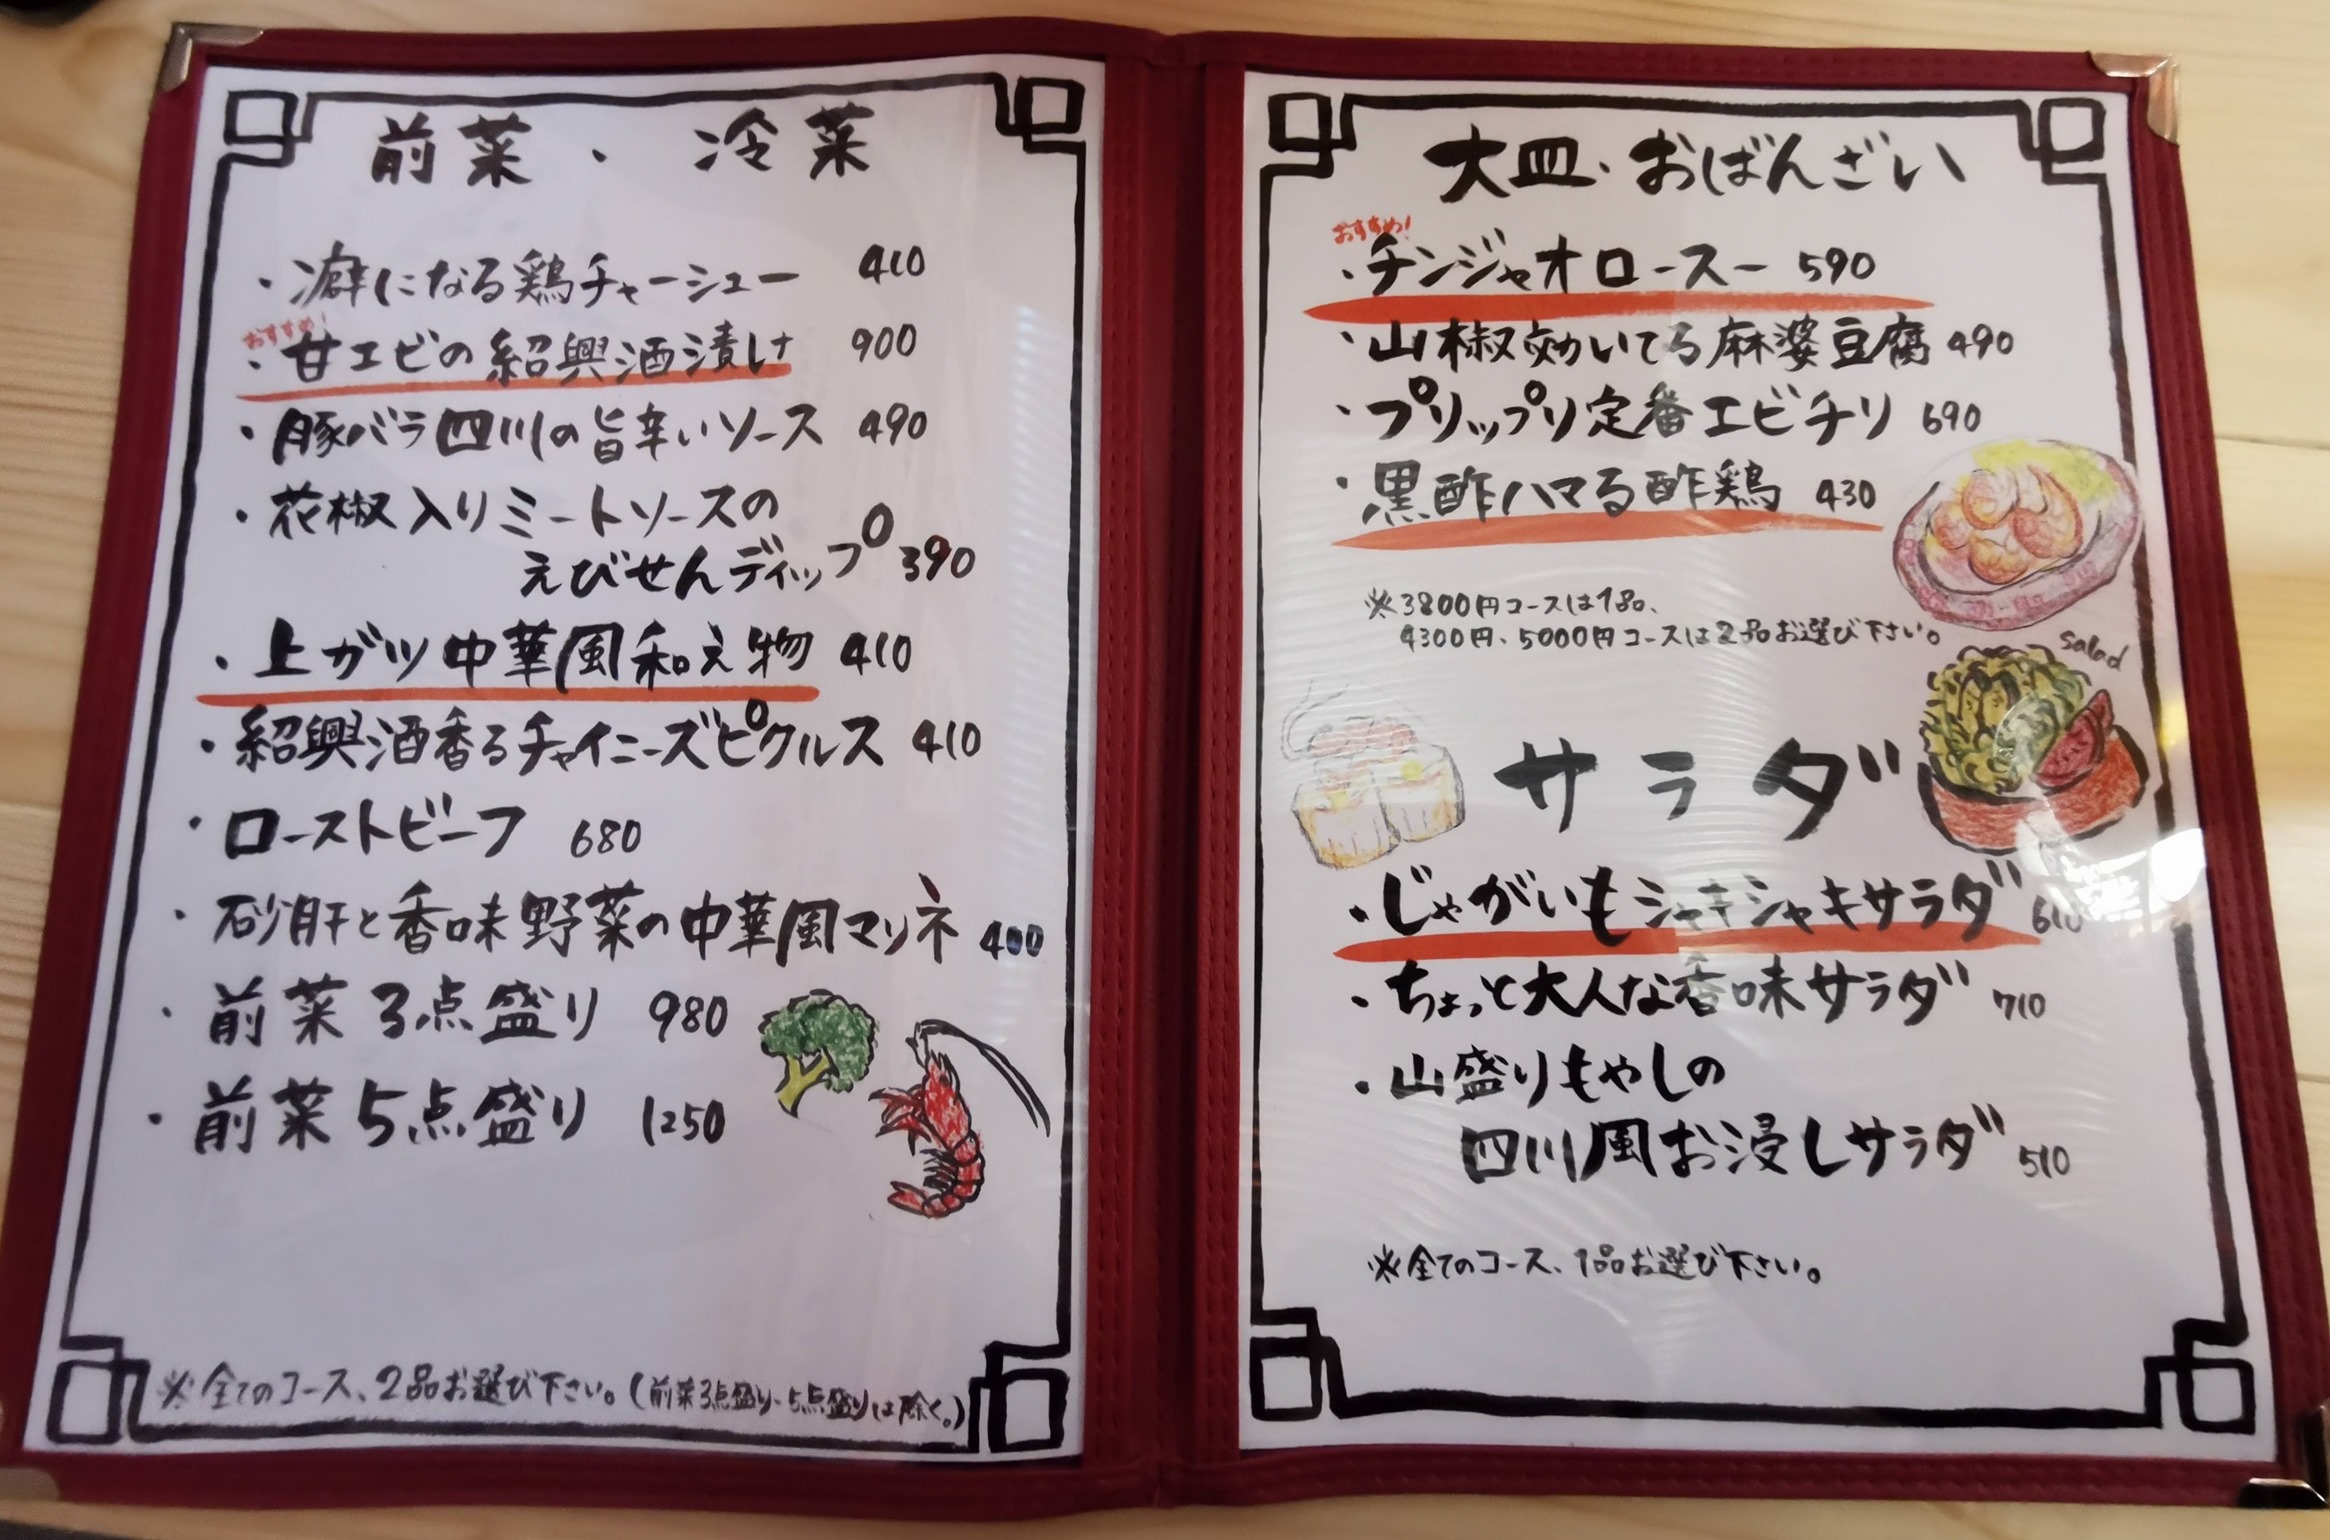 前菜・冷菜
・癖になる鶏チャーシュー 410
おすすめ!
・甘エビの紹興酒漬け 900
・豚バラ四川の旨辛いソース 490
・花椒入りミートソースの
えびせんディップ 390
・上ガツ中華風和え物 410
・紹興酒香るチャイニーズピクルス 410
・ローストビーフ 680
・砂肝と香味野菜の中華風マリネ 400
・前菜3点盛り 980
・前菜5点盛り 1250
※全てのコース、2品お選び下さい。(前菜3点盛り、5点盛りは除く。)
大皿・おばんざい
おすすめ!
・チンジャオロースー 590
・山椒効いてる麻婆豆腐 490
・プリップリ定番エビチリ 690
・黒酢ハマる酢鶏 430
※3800円コースは1品、
4300円、5000円コースは2品お選び下さい。
salad
サラダ
・じゃがいもシャキシャキサラダ 610
・ちょっと大人な香味サラダ 710
・山盛りもやしの
四川風お浸しサラダ 510
※全てのコース、1品お選び下さい。